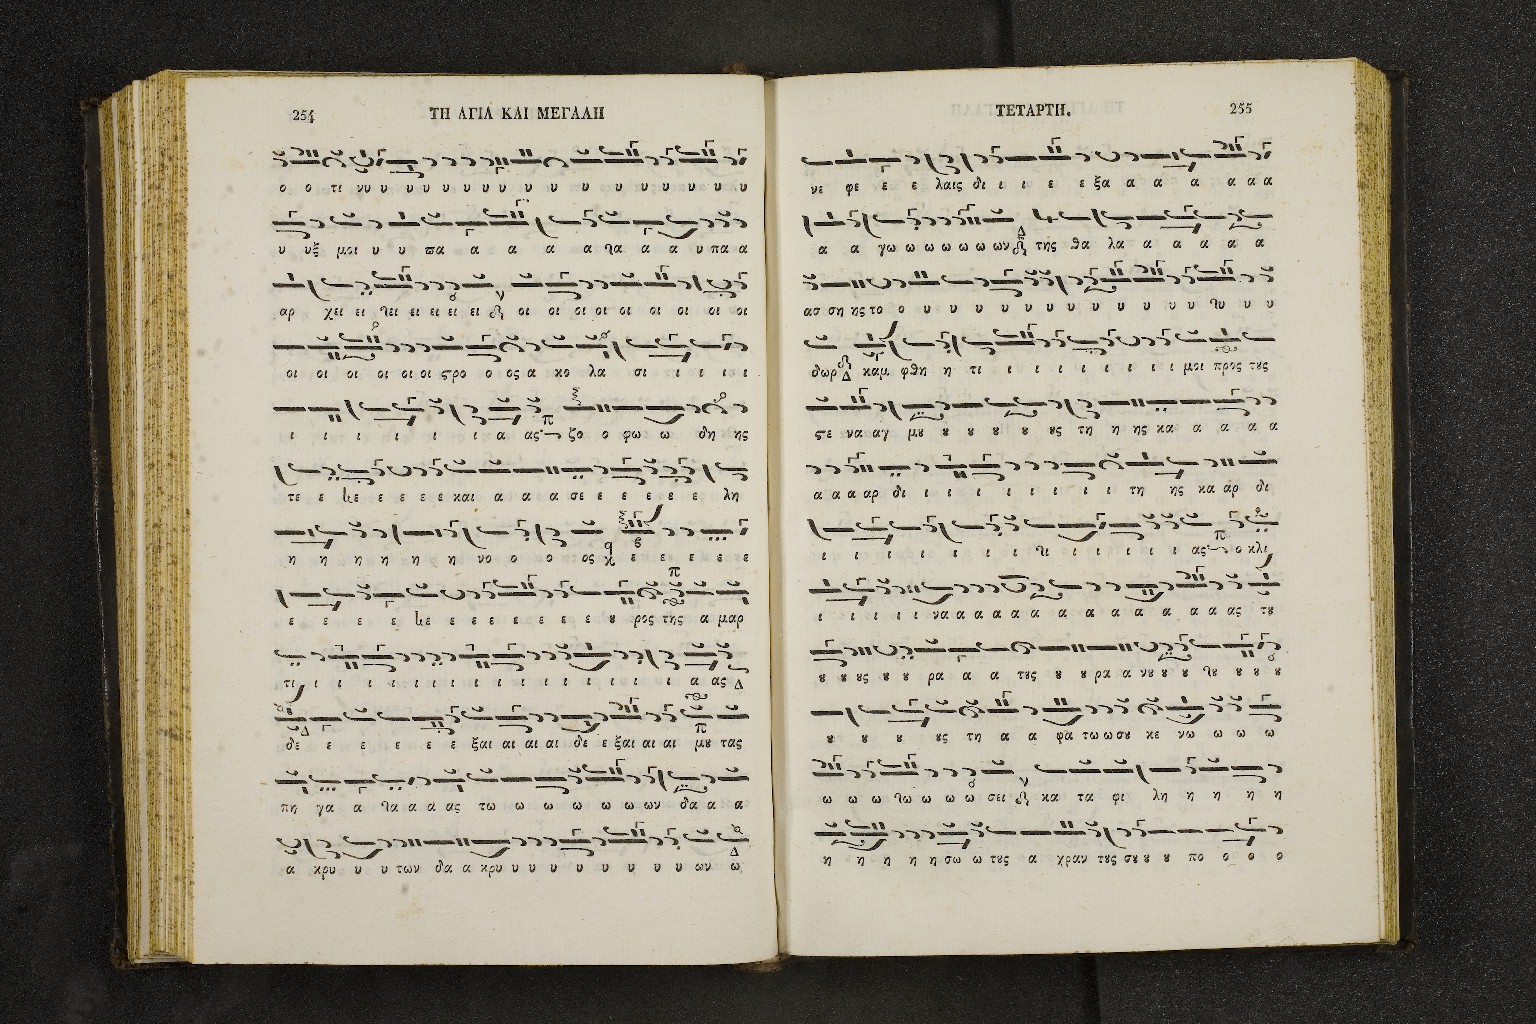 254 ΤΗ ΑΓΙΑ ΚΑΙ ΜΕΓΑΛΗ
ο ο τι νυ υ υ υ υ υ υ υ υ υ υ υ υ υ υ υ υ
υ υξ μοι υ υ πα α α α α α α α α υ πα α
αρ χει ει ει ει ει ει ει οι οι οι οι οι οι οι οι οι
οι οι οι οι οι οι ϛρο ο ος α κο λα σι ι ι ι ι
ι ι ι ι ι ι ι α ας ζο ο φω ω δη ης
τε ε ε ε ε ε ε και α α α σε ε ε ε ε ε λη
η η η η η η η νο ο ο ο ος ϗ ε ε ε ε ε ε
ε ε ε ε ε ε ε ε ε ε ε ȣ ρος της α μαρ
τι ι ι ι ι ι ι ι ι ι ι ι ι ι ι ι ι α ας
δε ε ε ε ε ε ε ξαι αι αι αι δε ε ξαι αι αι μȣ τας
πη γα α α α α ας τω ω ω ω ω ω ω ων δα α α
α κρυ υ υ υ των δα α κρυ υ υ υ υ υ υ υ υ ων ω
ΤΕΤΑΡΤΗ. 255
νε φε ε ε λαις δι ι ι ε ε ξα α α α α α α
α α γω ω ω ω ω ω ων της θα λα α α α α α
ασ ση ης το ο υ υ υ υ υ υ υ υ υ υ υ υ υ υ
δωρ καμ φθη η τι ι ι ι ι ι ι ι ι μοι προς τȣς
ϛε να αγ μȣ ȣ ȣ ȣ ȣ ȣς τη η ης κα α α α α
α α α αρ δι ι ι ι ι ι ι ι ι τη ης κα αρ δι
ι ι ι ι ι ι ι ι ι ι ι ι ι ας ο κλι
ι ι ι ι ι να α α α α α α α α α α α α ας τȣ
ȣ ȣ ȣς ȣ ρα α α τȣς ȣ ȣ ρα α νȣ ȣ ȣ ȣ ȣ ȣ ȣ
ȣ ȣ ȣ ȣς τη α α φα τω ω σȣ κε νω ω ω ω
ω ω ω ω ω ω ω σει κα τα φι λη η η η η
η η η η η σω ω τȣς α χραν τȣς σȣ ȣ ȣ πο ο ο ο